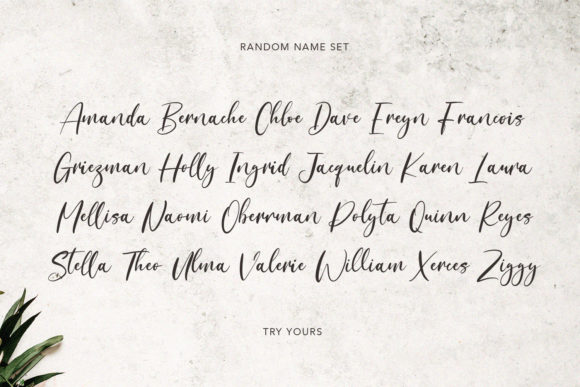 RANDOM NAME SET
Amanda Bernache Chloe Dave Ereyn Francois
Griezman Holly Ingrid Jacquelin Karen Laura
Mellisa Naomi Oberrman Polyta Quinn Reyes
Stella Theo Ulma Valerie William Xerces Ziggy
TRY YOURS